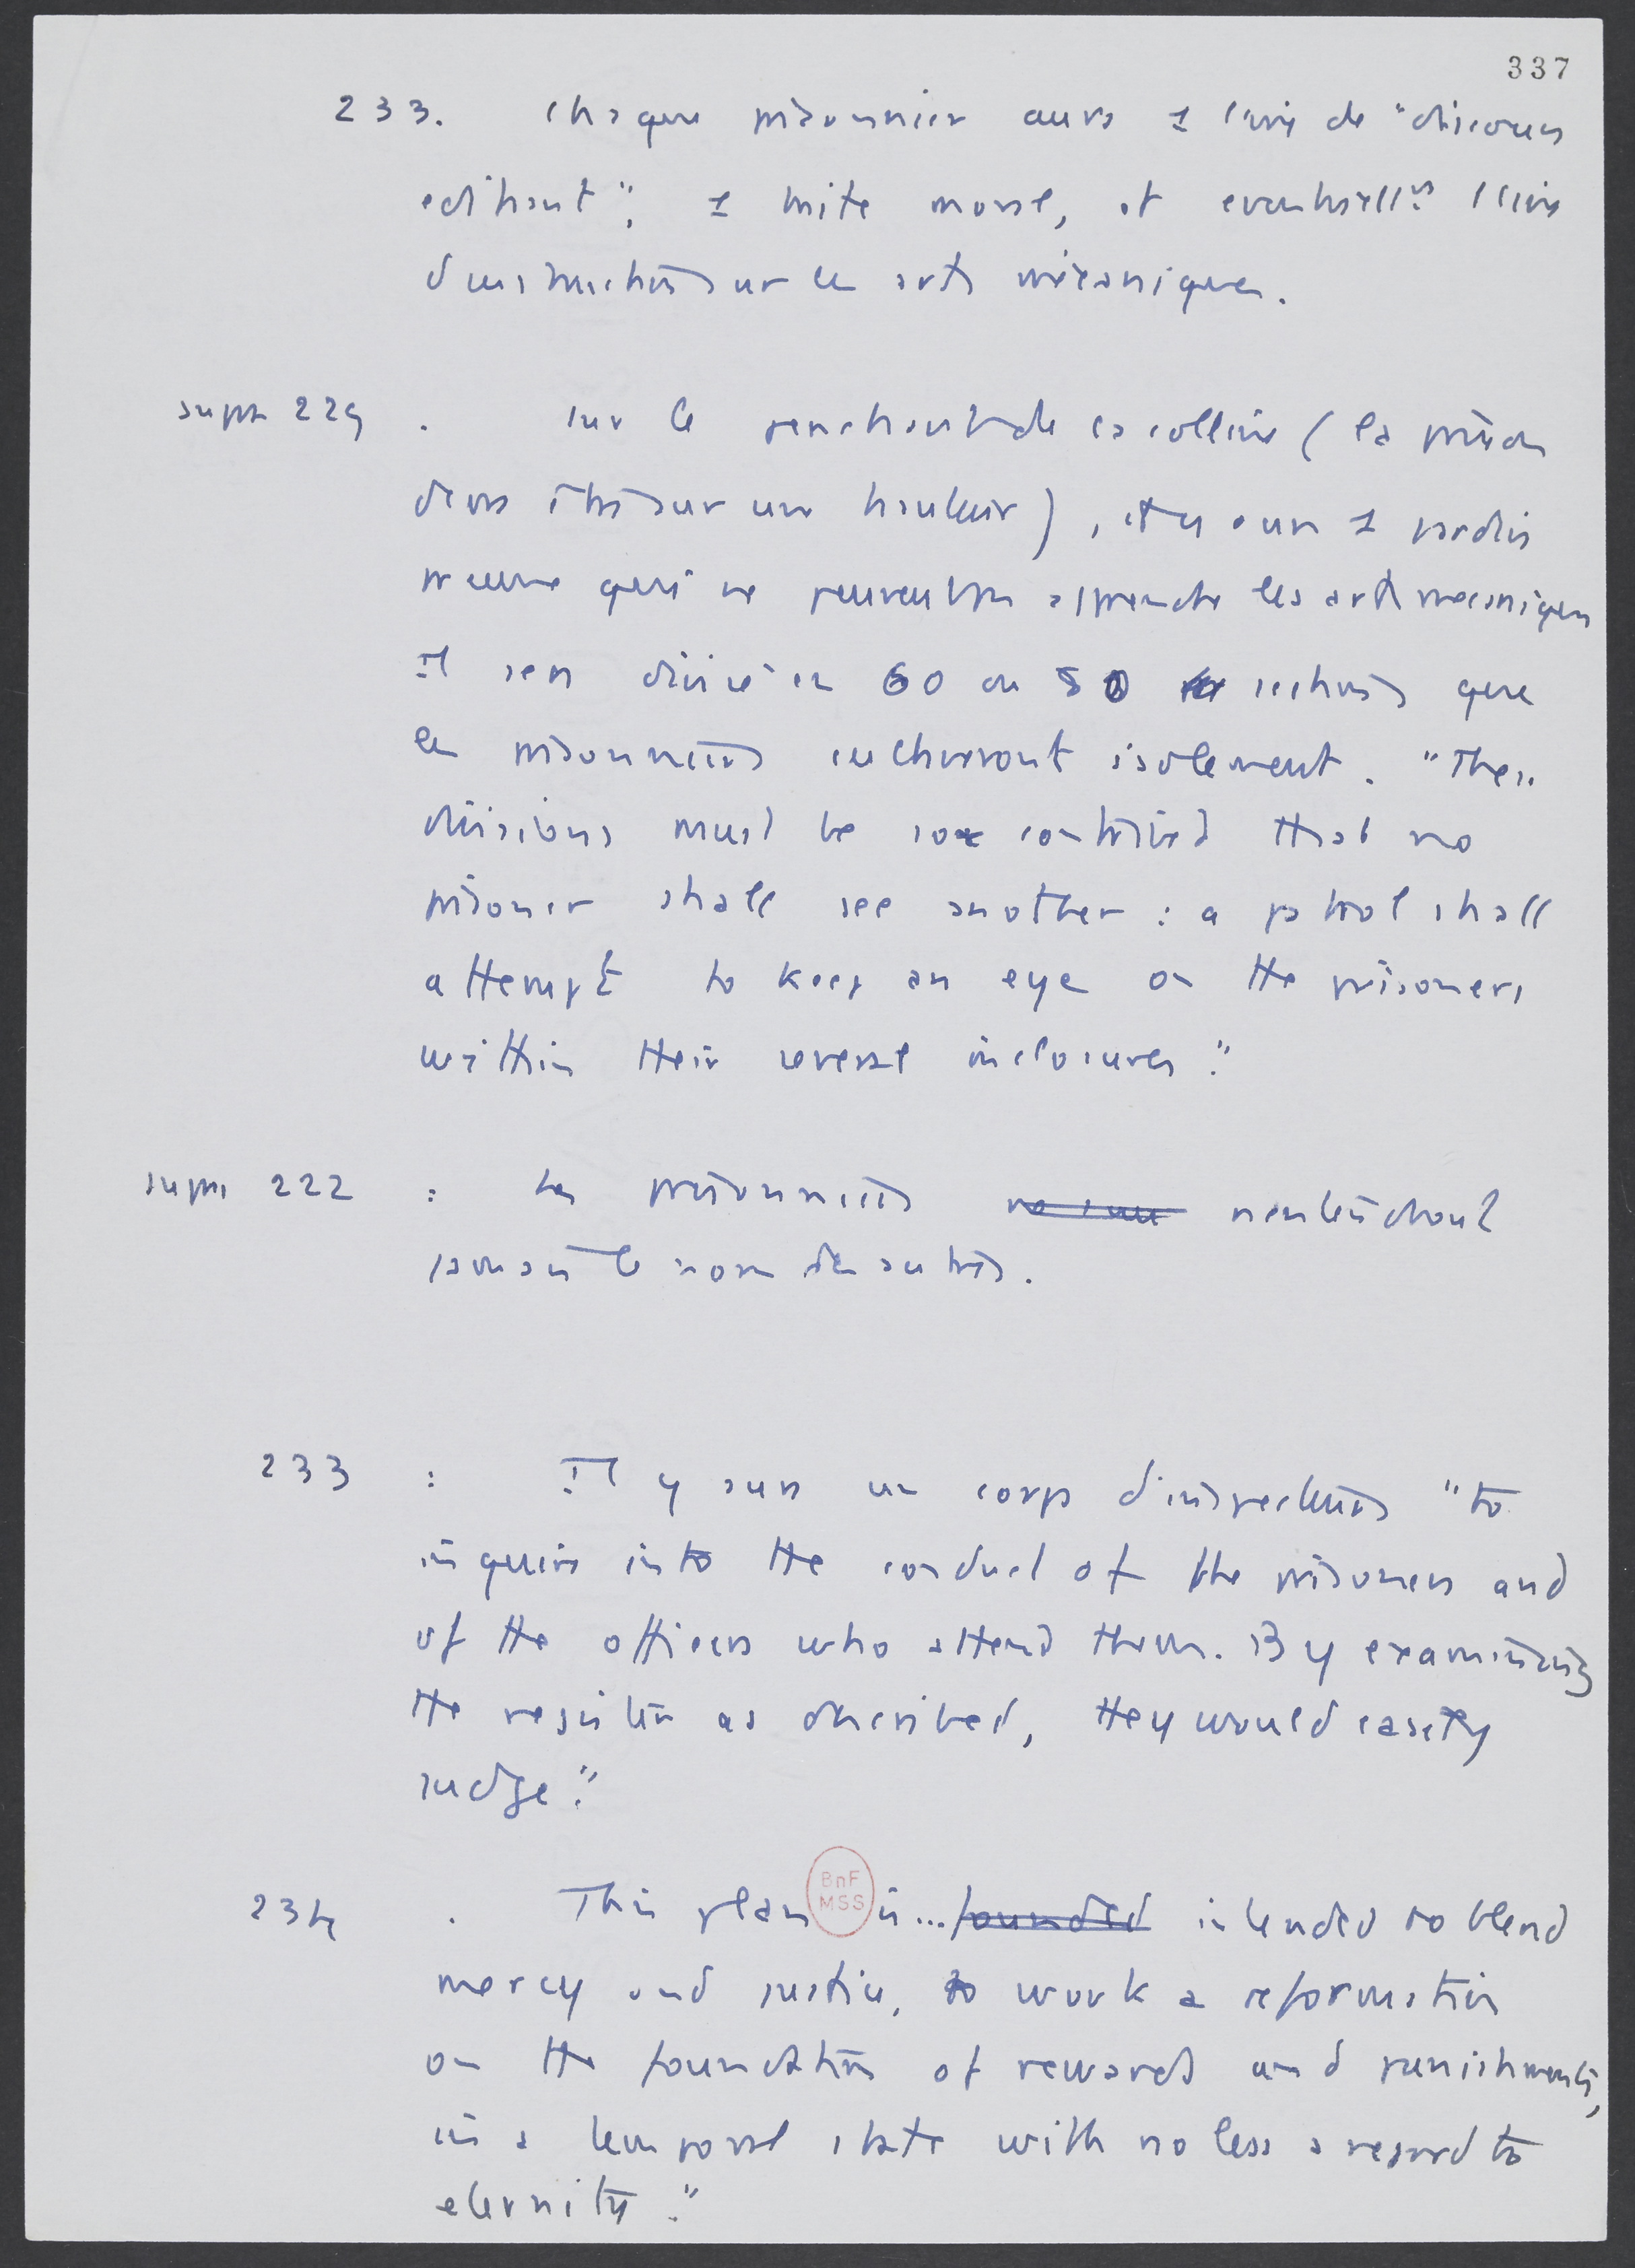 337
233. Chaque prisonnier aura 1 livre de "discours
edifiant", 1 traité moral, et eventuellt 1 livre
d'instructions sur les arts mécaniques.
supra 229 . sur le penchant de la colline (la prison
devra être sur une hauteur), il y aura 1 jardin
pr ceux qui ne peuvent pas apprendre les arts mecaniques
Il sera divisé en 60 ou 80 sections que
les prisonniers cultiveront isolement. "These
divisions must be so contrived that no
prisoner shall see another : a patrol shall
attempt to keep an eye on the prisoners
within their several inclosures."
supra 222 : Les prisonniers n'entendront
jamais le nom des autres.
233 : Il y aura un corps d'inspecteurs "to
inquire into the conduct of the prisoners and
of the officers who attend them. By examining
the register as described, they would easily
judge."
234 . This plan is... founded intended to blend
BnF
MSS
mercy and justice, to work a reformation
on the foundation of rewards and punishments,
in a temporal state with no less a regard to
eternity."